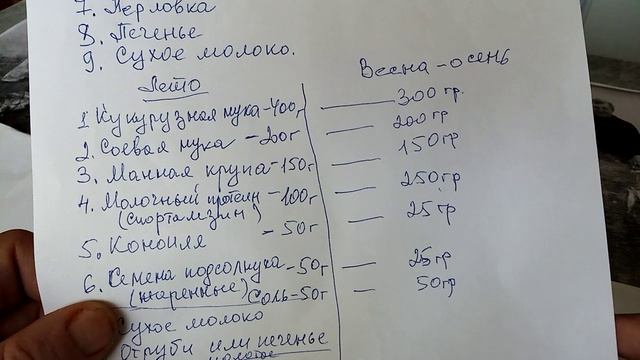 7. Перловка
8. Печенье
9. Сухое молоко.
Лето
Весна-осень
1. Кукурузная мука-400г — 300 гр.
2. Соевая мука -200г — 200 гр
3. Манная крупа-150г — 150 гр
4. Молочный протеин -100г — 250 гр
(спортамзин)
5. Конопля - 50г — 25 гр
6. Семена подсолнуха -50г — 25 гр
(жаренные) Соль-50г — 50 гр
Сухое молоко
Отруби или печенье